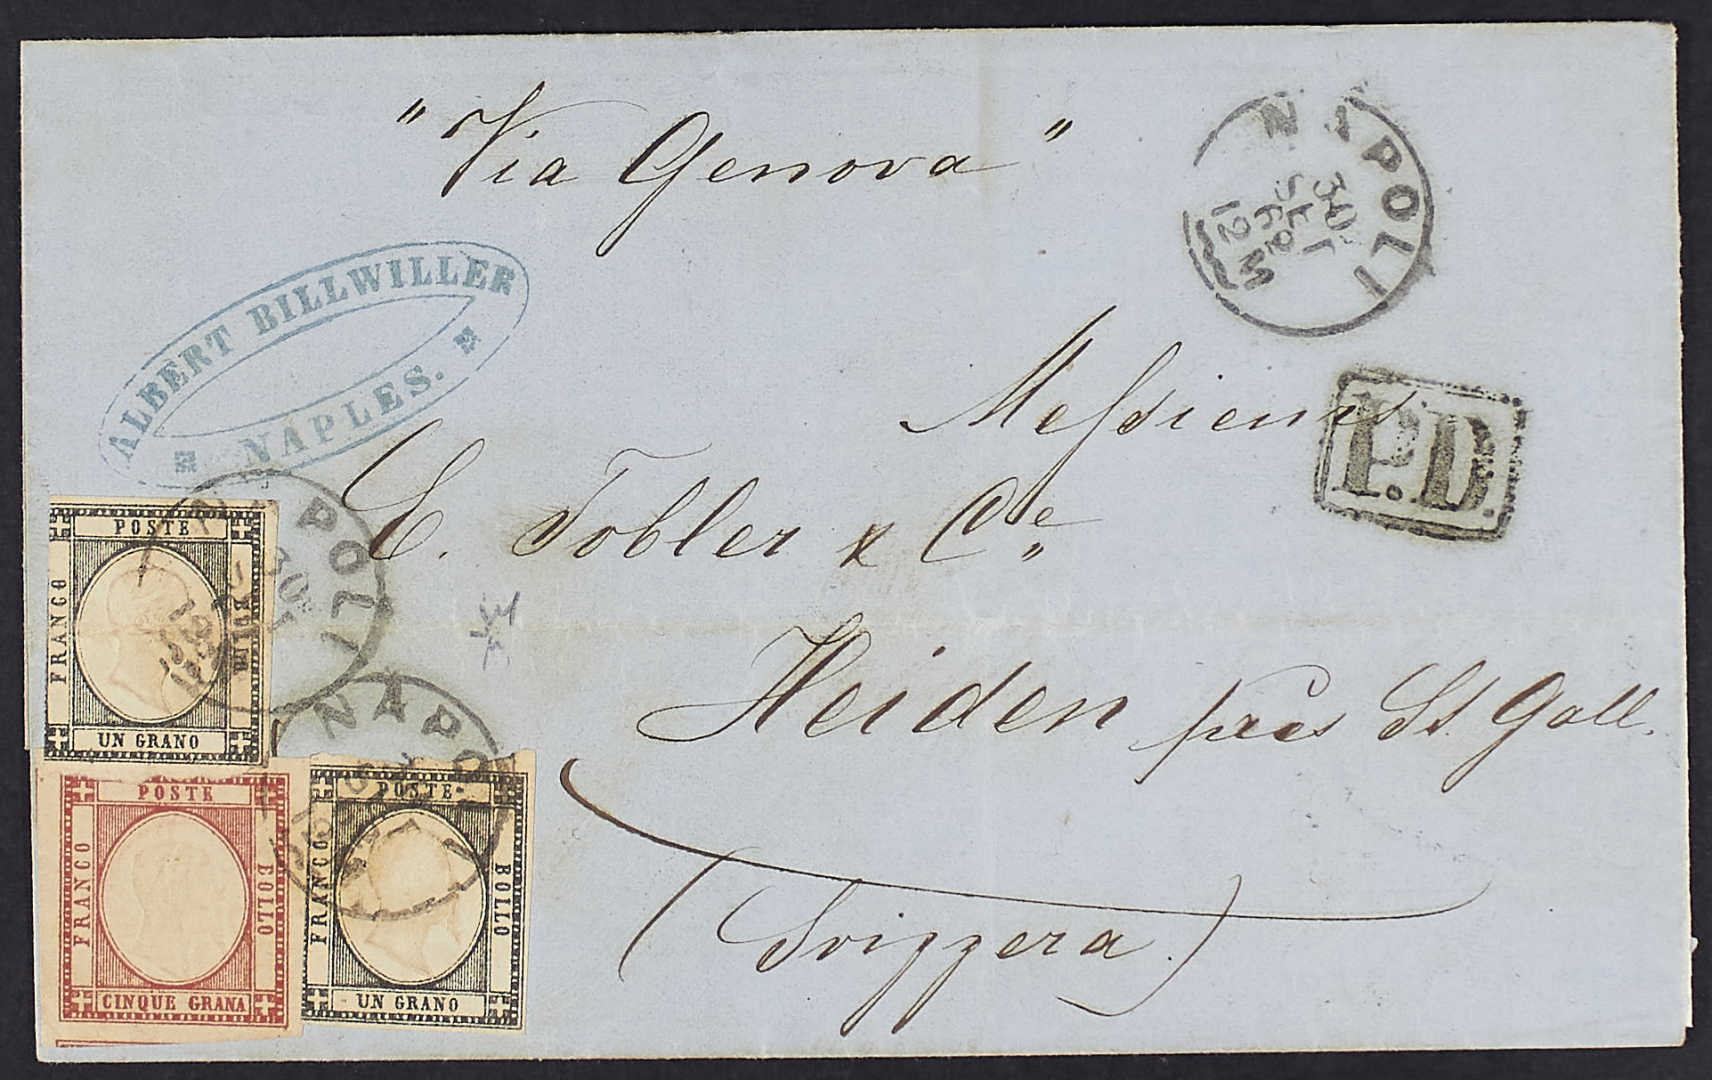 "Via Genova"
NAPOLI
30
SET
62
12 M
ALBERT BILLWILLER
NAPLES.
Messieurs
P.D.
C. Tobler & Cie
Heiden près St Gall.
(Svizzera)
NAPOLI
30
POSTE
FRANCO
BOLLO
UN GRANO
NAPO
POSTE
FRANCO
BOLLO
CINQUE GRANA
POSTE
FRANCO
BOLLO
UN GRANO